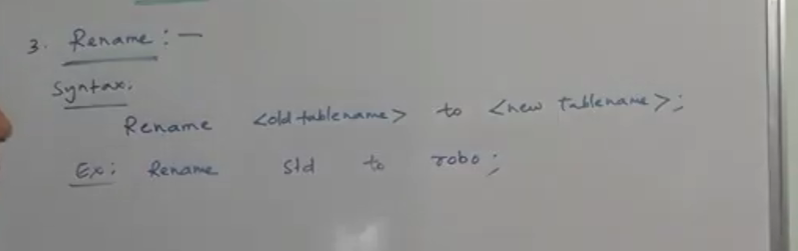 3. Rename : —
Syntax.
Rename <old tablename> to <new tablename>;
Ex: Rename std to robo;